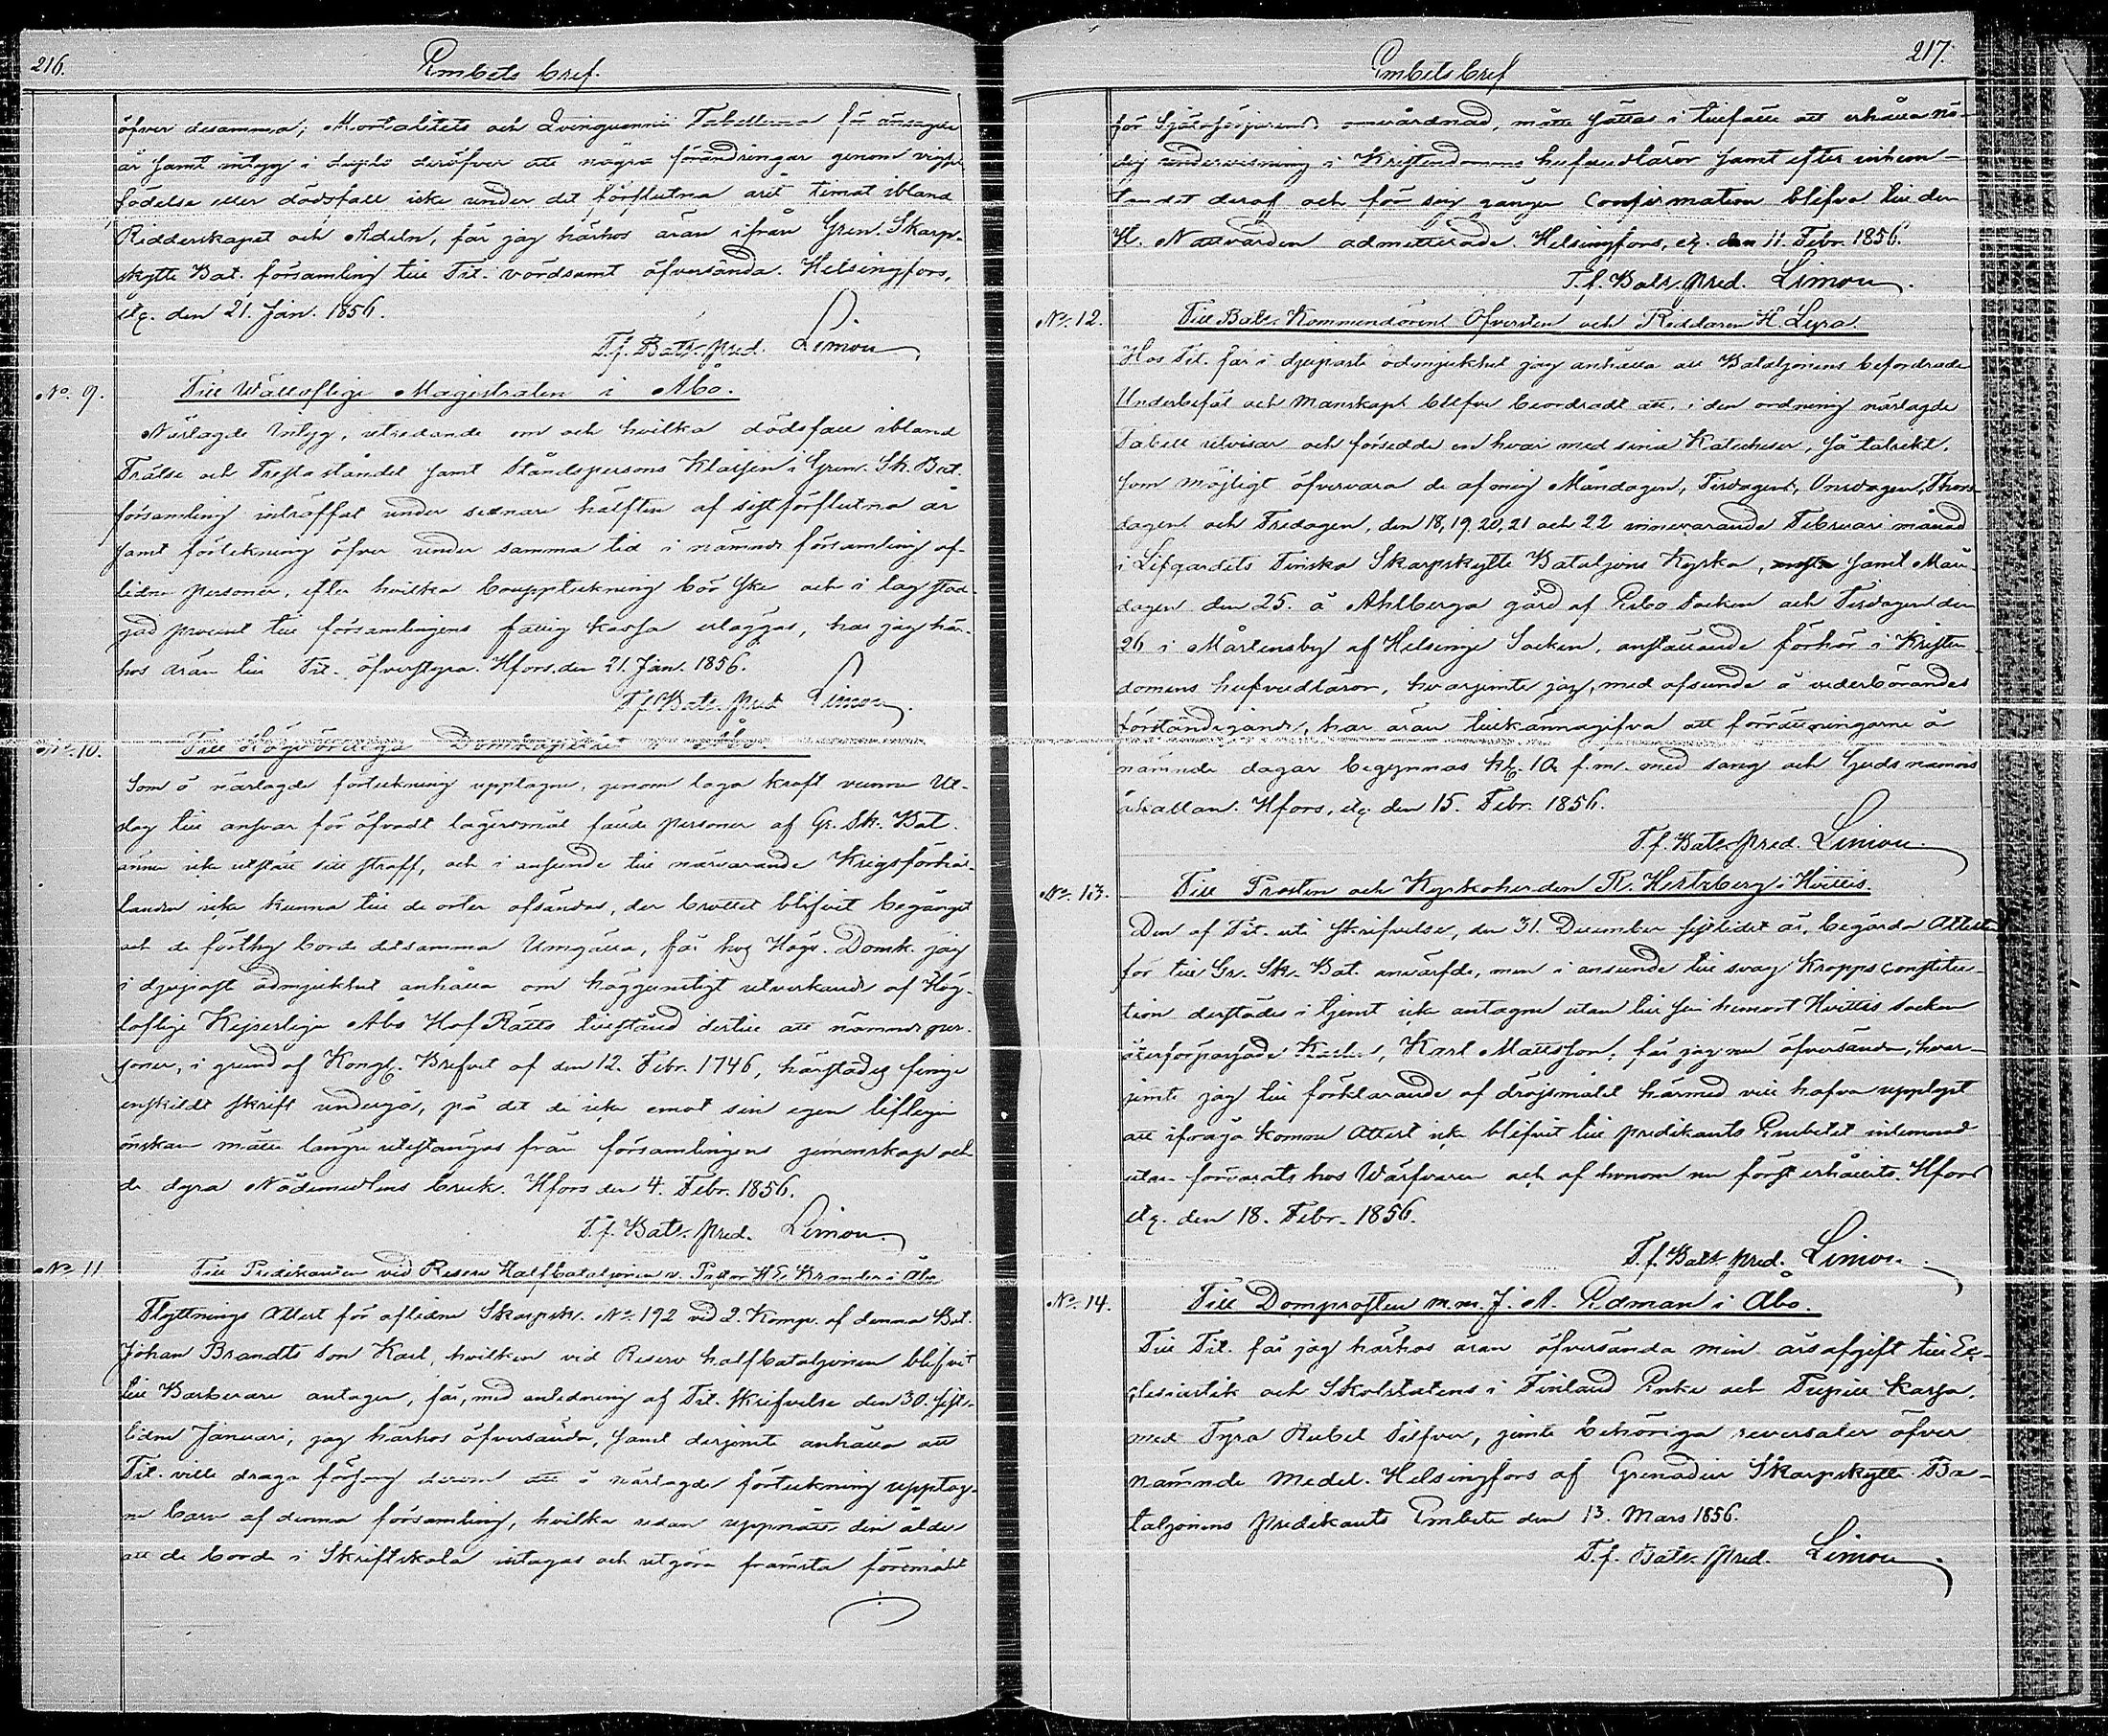 216.
Embets bref.
öfver desamma; Mortalitets och Qvinquennii Tabellerna för
år samt intyg i duplo deröfver att några förändringar genom vigsel
födelse eller dödsfall icke under det förflutna året timat ibland
Ridderskapet och Adeln, får jag härhos äran ifrån Gren. Skarp-
skytte Bat. församling till Tit. vördsamt öfversända. Helsingfors,
etc. den 21. Jan. 1856.
T.f. Bats. pred. Limon
No. 9.
Till Wällofliga Magistraten i Åbo.
Närlagde Intyg, utredande om och hvilka dödsfall ibland
Frälse och Presta ståndet samt Ståndspersons Klassen i Gren. Sk. Bat.
församling inträffat under sednare hälften af sistförflutna år
samt förtekning öfver under samma tid i nämnde församling af-
lidna personer, efter hvilka bouppteckning bör ske och i lag stad-
gad procent till församlingens fattig kassa erläggas, har jag här-
hos äran till Tit. öfverstyra. Hfors, den 21. Jan. 1856.
T.f. Bats. pred Limon.
No. 10.
Till Högvördiga Domkapitlet i Åbo.
Som å närlagde förteckning upptagne, genom laga kraft vunne Ut-
slag till ansvar för öfvadt lägersmål fällde personer af Gr. Sk. Bat.
ännu icke utstått sitt straff, och i anseende till närvarande Krigsförhål-
landen icke kunna till de orter afsändas, der brottet blifvit begånget
och de förthy borde detsamma Umgälla, får hos Högv. Domk. jag
i djupast ödmjukhet anhålla om höggunstigt utverkande af Hög-
loflige Kejserliga Åbo Hof Rätts tillstånd dertill att nämnde per-
soner, i grund af Kongl. Brefvet af den 12. Febr. 1746, härstädes finge
enskildt skrift undergå, på det de icke emot sin egen lifliga
önskan måtte längre utestängas från församlingens gemenskap och
de dyra Nådemedlens bruk. Hfors den 4. Febr. 1856.
T.f. Bats. pred. Limon
No. 11
Till Predikanten vid Reserv Halfbataljonen v. Pastor H.E. Brander i Åbo
Flyttnings Attest för aflidne Skarpsk. No. 192 vid 2. Komp. af denna Bat.
Johan Brandts son Karl, hvilken vid Reserv halfbataljonen blifvit
till Barberare antagen, får, med anledning af Tit. skrifvelse den 30. sist-
lidne Januari, jag härhos öfversända, samt derjemte anhålla att
Tit. ville draga försorg derom att å närlagde förteckning upptag-
ne barn af denna församling, hvilka redan uppnått den ålder
att de borde i Skriftskola intagas och utgöra främsta föremålet
217.
Embetsbref
för Själasörjarens omvårdnad, måtte sättas i tillfälle att erhålla nö-
dig undervisning i Kristendomens hufvudläror samt efter inhem-
tandet deraf och för sig gången Confirmation blifva till den
H. Nattvarden admitterade. Helsingfors, etc. den 11. Febr. 1856.
T.f. Bats. pred. Limon.
No. 12.
Till Bats. Kommendören Öfversten och Riddaren H. Lyra.
Hos Tit. får i djupaste ödmjukhet jag anhålla att Bataljonens befordrade
Underbefäl och Manskap blefve beordradt att, i den ordning närlagde
Tabell utvisar och försedde en hvar med sina Katecheser, så talrikt,
som möjligt öfvervara de af mig Måndagen, Tisdagen, Onsdagen, Thors-
dagen och Fredagen, den 18, 19, 20, 21 och 22 innevarande Februari månad
i Lifgardets Finska Skarpskytte Bataljons Kyrka, samt Mån-
dagen den 25. å Ahlberga gård af Esbo socken och Tisdagen den
26 i Mårtensby af Helsinge Socken, anställande förhör i Kristen-
domens hufvudläror, hvarjemte jag, med afseende å vederbörandes
förständigande, har äran tillkännagifva att förrättningarne å
nämnde dagar begynnas kl. 10 f.m. med sång och Guds namns
åkallan. Hfors, etc. den 15. Febr. 1856.
T.f. Bats. pred. Limon.
No. 13.
Till Prosten och Kyrkoherden R. Hertzberg i Hvittis.
Den af Tit. uti skrifvelse, den 31. December sistlidet år, begärda Attesten
för till Gr. Sk. Bat. anvärfde, men i anseende till svag Kroppsconstitu-
tion derstädes i tjenst icke antagne utan till sin hemort Hvittis socken
återförpassade Karl Mattsson, får jag nu öfversända, hvar-
jemte jag till förklarande af dröjsmålet härmed vill hafva upplyst
att ifråga komne Attest icke blifvit till predikants Embetet inlemnad
utan förvarats hos Värfvaren och af honom nu först erhållits. Hfors
etc. den 18. Febr. 1856.
T.f. Bats. pred. Limon.
No. 14.
Till Domprosten m.m. J. A. Edman i Åbo.
Till Tit. får jag härhos äran öfversända min årsafgift till Ec-
clesiastik och Skolstatens i Finland Enke och Pupill Kassa,
med Fyra Rubel Silfver, jemte behöriga reversaler öfver
nämnde medel. Helsingfors af Grenadier Skarpskytte Ba-
taljonens predikants Embete den 13. Mars 1856.
T.f. Bats. pred. Limon.